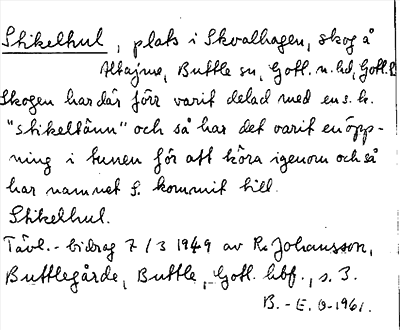 Stikelhul, plats i Skvalhagen, skog å
Altajme, Buttle sn, Gotl. n. hd, Gotl. l.
Skogen har där förr varit delad med en s. k.
"stikeltäun" och så har det varit en öpp-
ning i tunen för att köra igenom och så
har namnet S. kommit till.
Stikelhul.
Tävl.-bidrag 7/3 1949 av R. Johansson,
Buttlegårde, Buttle, Gotl. hbf., s. 3.
B.-E. O-1961.